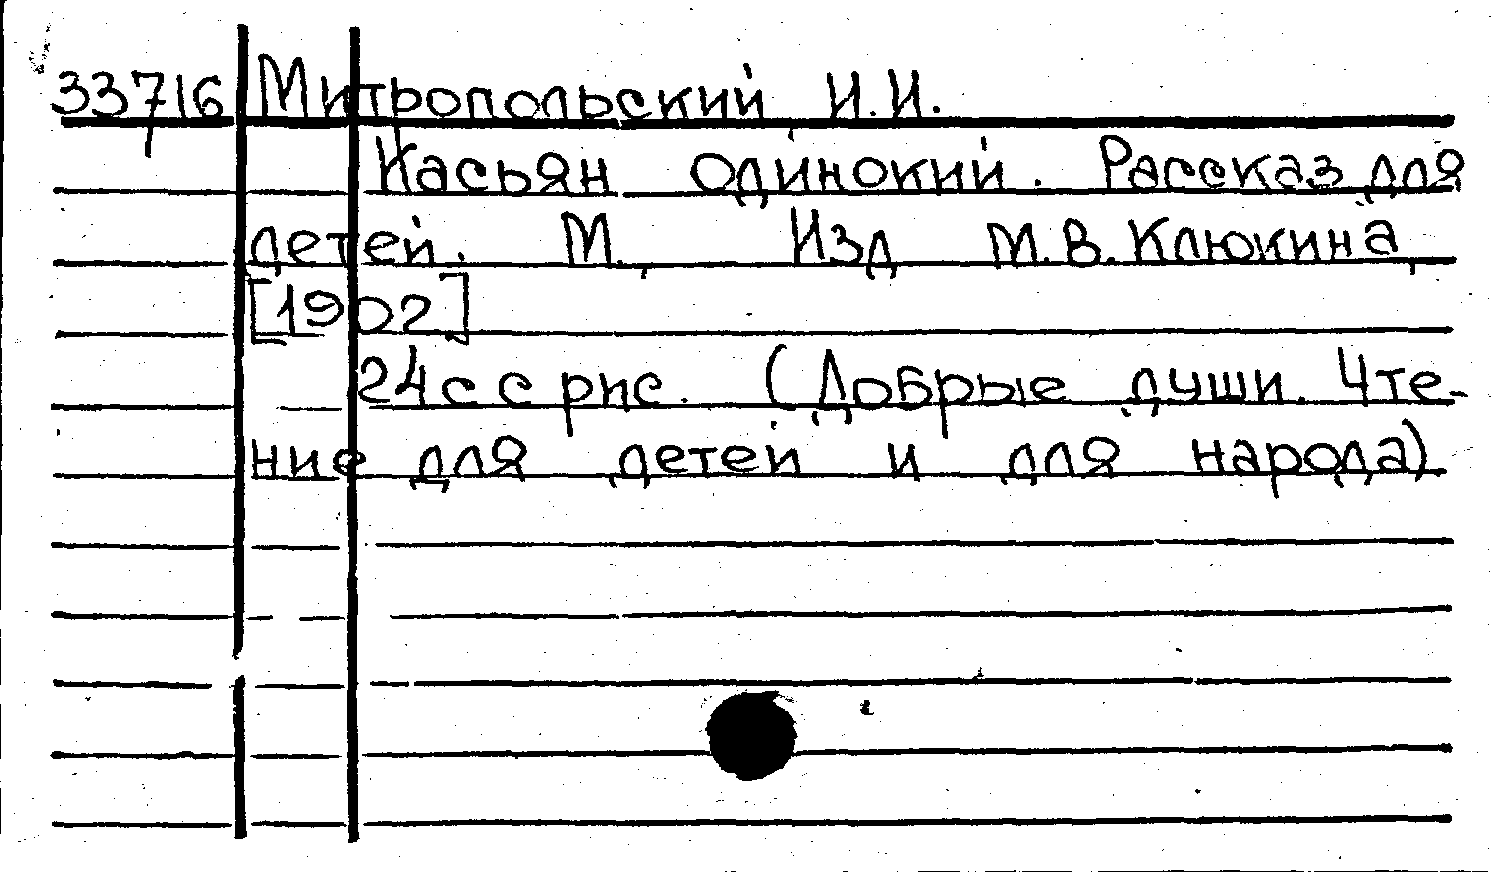 33716 Митропольский И.И.
Касьян одинокий. Рассказ для
детей. М., Изд М.В.Клюкина,
[1902]
24с с рис. (Добрые души. Чте-
ние для детей и для народа)